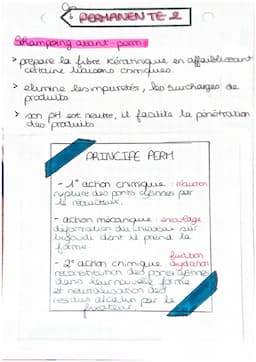 PERMANENTE 2
Shampoing avant-perm:
> prepare la fibre kératinique en affaiblissant
certaine liaisons chimiques.
> elimine les impuretés, les surcharges de
produits
> son pH est neutre, il facilite la pénétration
des produits
PRINCIPE PERM
- 1° action chimique : réduction
rupture des ponts cystines par
le réducteur.
- action mécanique : enroulage
déformation du cheveux sur
bigoudi dont il prend la
forme
fixation
- 2° action chimique oxydation
reconstitution des ponts cystines
dans leur nouvelle forme
et neutralisation des
residus alcalin par le
fixateur.